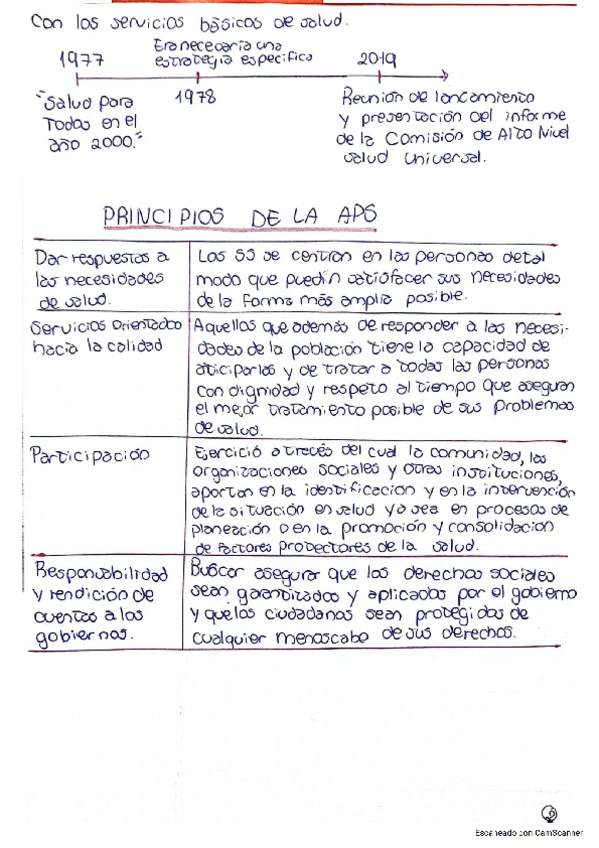 Con los servicios básicos de salud.
1977
Era necesaria una
estrategia especifica
2019
"Salud para
Todos en el
año 2000."
1978
Reunión de lanzamiento
y presentación del informe
de la Comisión de Alto Nivel
salud Universal.
PRINCIPIOS DE LA APS
Dar respuestas a
las necesidades
de salud.
Los SS se centran en las personas detal
modo que puedin satisfacer sus necesidades
de la forma más amplia posible.
Servicios Orientados
hacia la calidad
Aquellos que además de responder a las necesi-
dades de la población tiene la capacidad de
aticiparlas y de tratar a todas las personas
con dignidad y respeto al tiempo que aseguran
el mejor tratamiento posible de sus problemas
de salud.
Participación
Ejercició atrecés del cual la comunidad, las
organizaciones sociales y otras instituciones,
aportan en la identificacion y en la intervención
de la situación en salud ya sea en procesos de
planeación o en la promoción y consolidacion
de factores protectores de la salud.
Responsabilidad
y rendición de
cuentas a los
gobiernos.
Buscar asegurar que los derechos sociales
sean garantizados y aplicados por el gobierno
y quelos ciudadanos sean protegidos de
cualquier menoscabo de sus derechos.
Escaneado con CamScanner